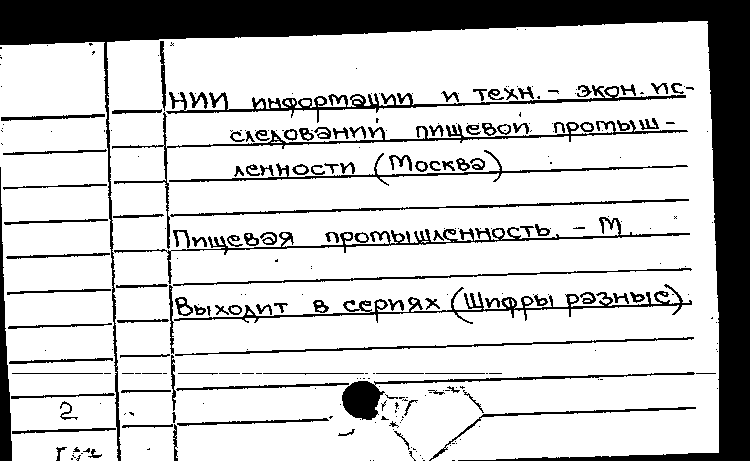 НИИ информации и техн.- экон. ис-
следований пищевой промыш-
ленности (Москва)
Пищевая промышленность. - М.
Выходит в сериях (Шифры разные).
2